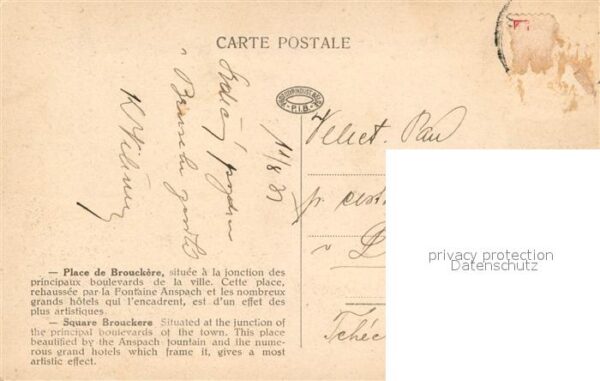 CARTE POSTALE
P.I.B.
Srdečný pozdrav
z Bruselu zasílá
11/8 35
Velect. Pan
p.
v
Tchéc
privacy protection
Datenschutz
— Place de Brouckère, située à la jonction des
principaux boulevards de la ville. Cette place,
rehaussée par la Fontaine Anspach et les nombreux
grands hôtels qui l'encadrent, est d'un effet des
plus artistiques.
— Square Brouckere. Situated at the junction of
the principal boulevards of the town. This place
beautified by the Anspach fountain and the nume-
rous grand hotels which frame it, gives a most
artistic effect.